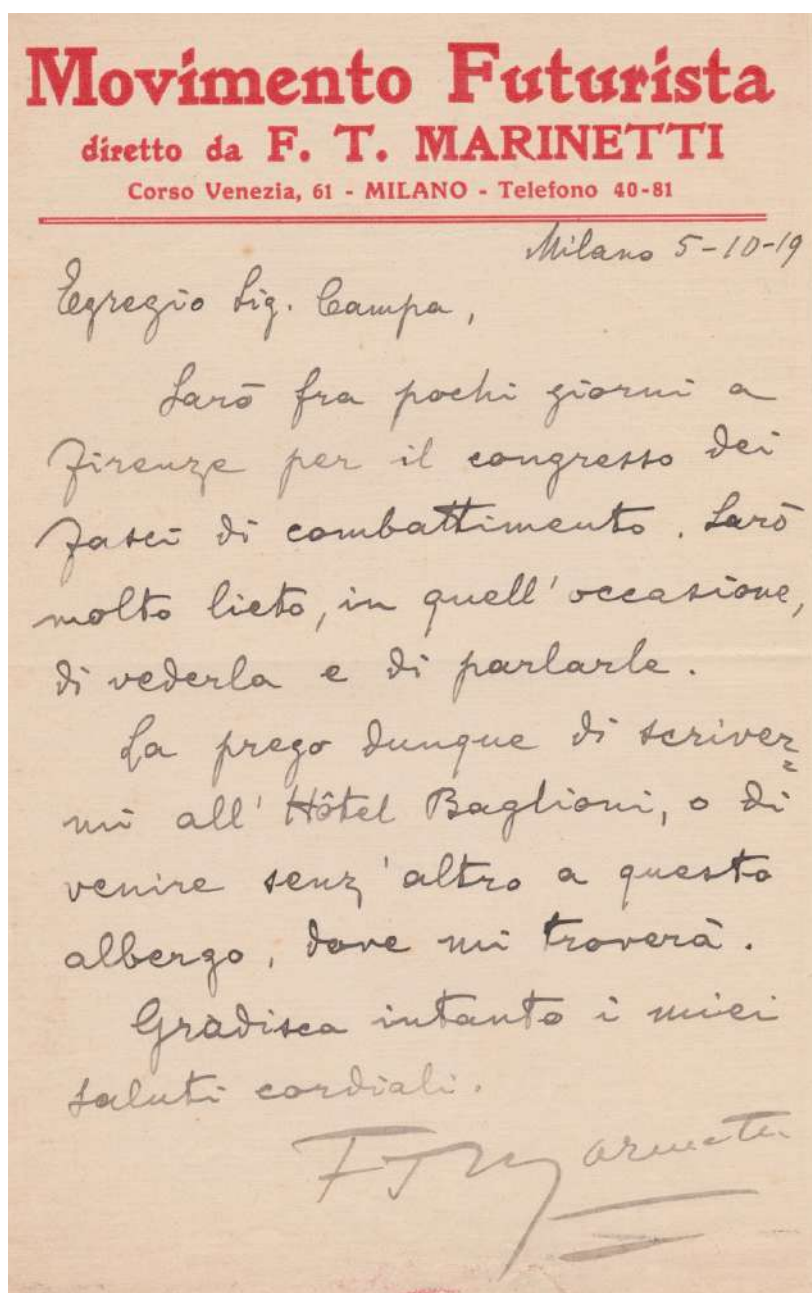 Movimento Futurista
diretto da F. T. MARINETTI
Corso Venezia, 61 - MILANO - Telefono 40-81
Milano 5-10-19
Egregio Sig. Campa,
Sarò fra pochi giorni a
Firenze per il congresso dei
Fasci di combattimento. Sarò
molto lieto, in quell'occasione,
di vederla e di parlarle.
La prego dunque di scriver=
mi all'Hôtel Baglioni, o di
venire senz'altro a questo
albergo, dove mi troverà.
Gradisca intanto i miei
saluti cordiali.
FTMarinetti